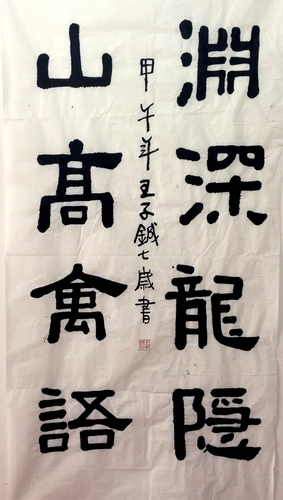 淵深龍隱
山高禽語
甲午年王子鉞七歲書